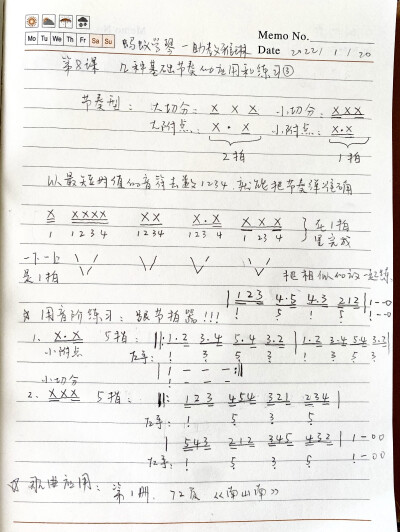 Memo No.
Mo Tu We Th Fr Sa Su
Date 2022 / 1 / 20
第8课 几种基础节奏的应用和练习③
节奏型: 大切分: X X X 小切分: XXX
大附点: X · X 小附点: X·X
2拍 1拍
以最短时值的音符去数1234,就能把节奏弹准确
X XXXX XX X·X X X X 在1拍
1 1 2 3 4 1234 123 4 1 23 4 里完成
一下一上
是1拍 把相似的放一起练
1 2 3 4·5 4·3 2 1 2 | 1 - - 0
用音阶练习: 跟节拍器!!!
1. X·X 5指: ‖: 1·2 3·4 5·4 3·2 | 1·2 3·4 5·4 3·2 |
小附点 左手: 1 3 5 3 1 3 5 3
1 - - - :‖
小切分
2. XXX 5指: ‖: 1 2 3 4 5 4 3 2 1 2 3 4 |
左手: 1 5 3 5
5 4 3 2 1 2 3 4 5 4 3 2 | 1 - 0 0
左手: 1 5 3 5 1 - 0 0
歌曲应用: 第1册, 72页 《南山南》